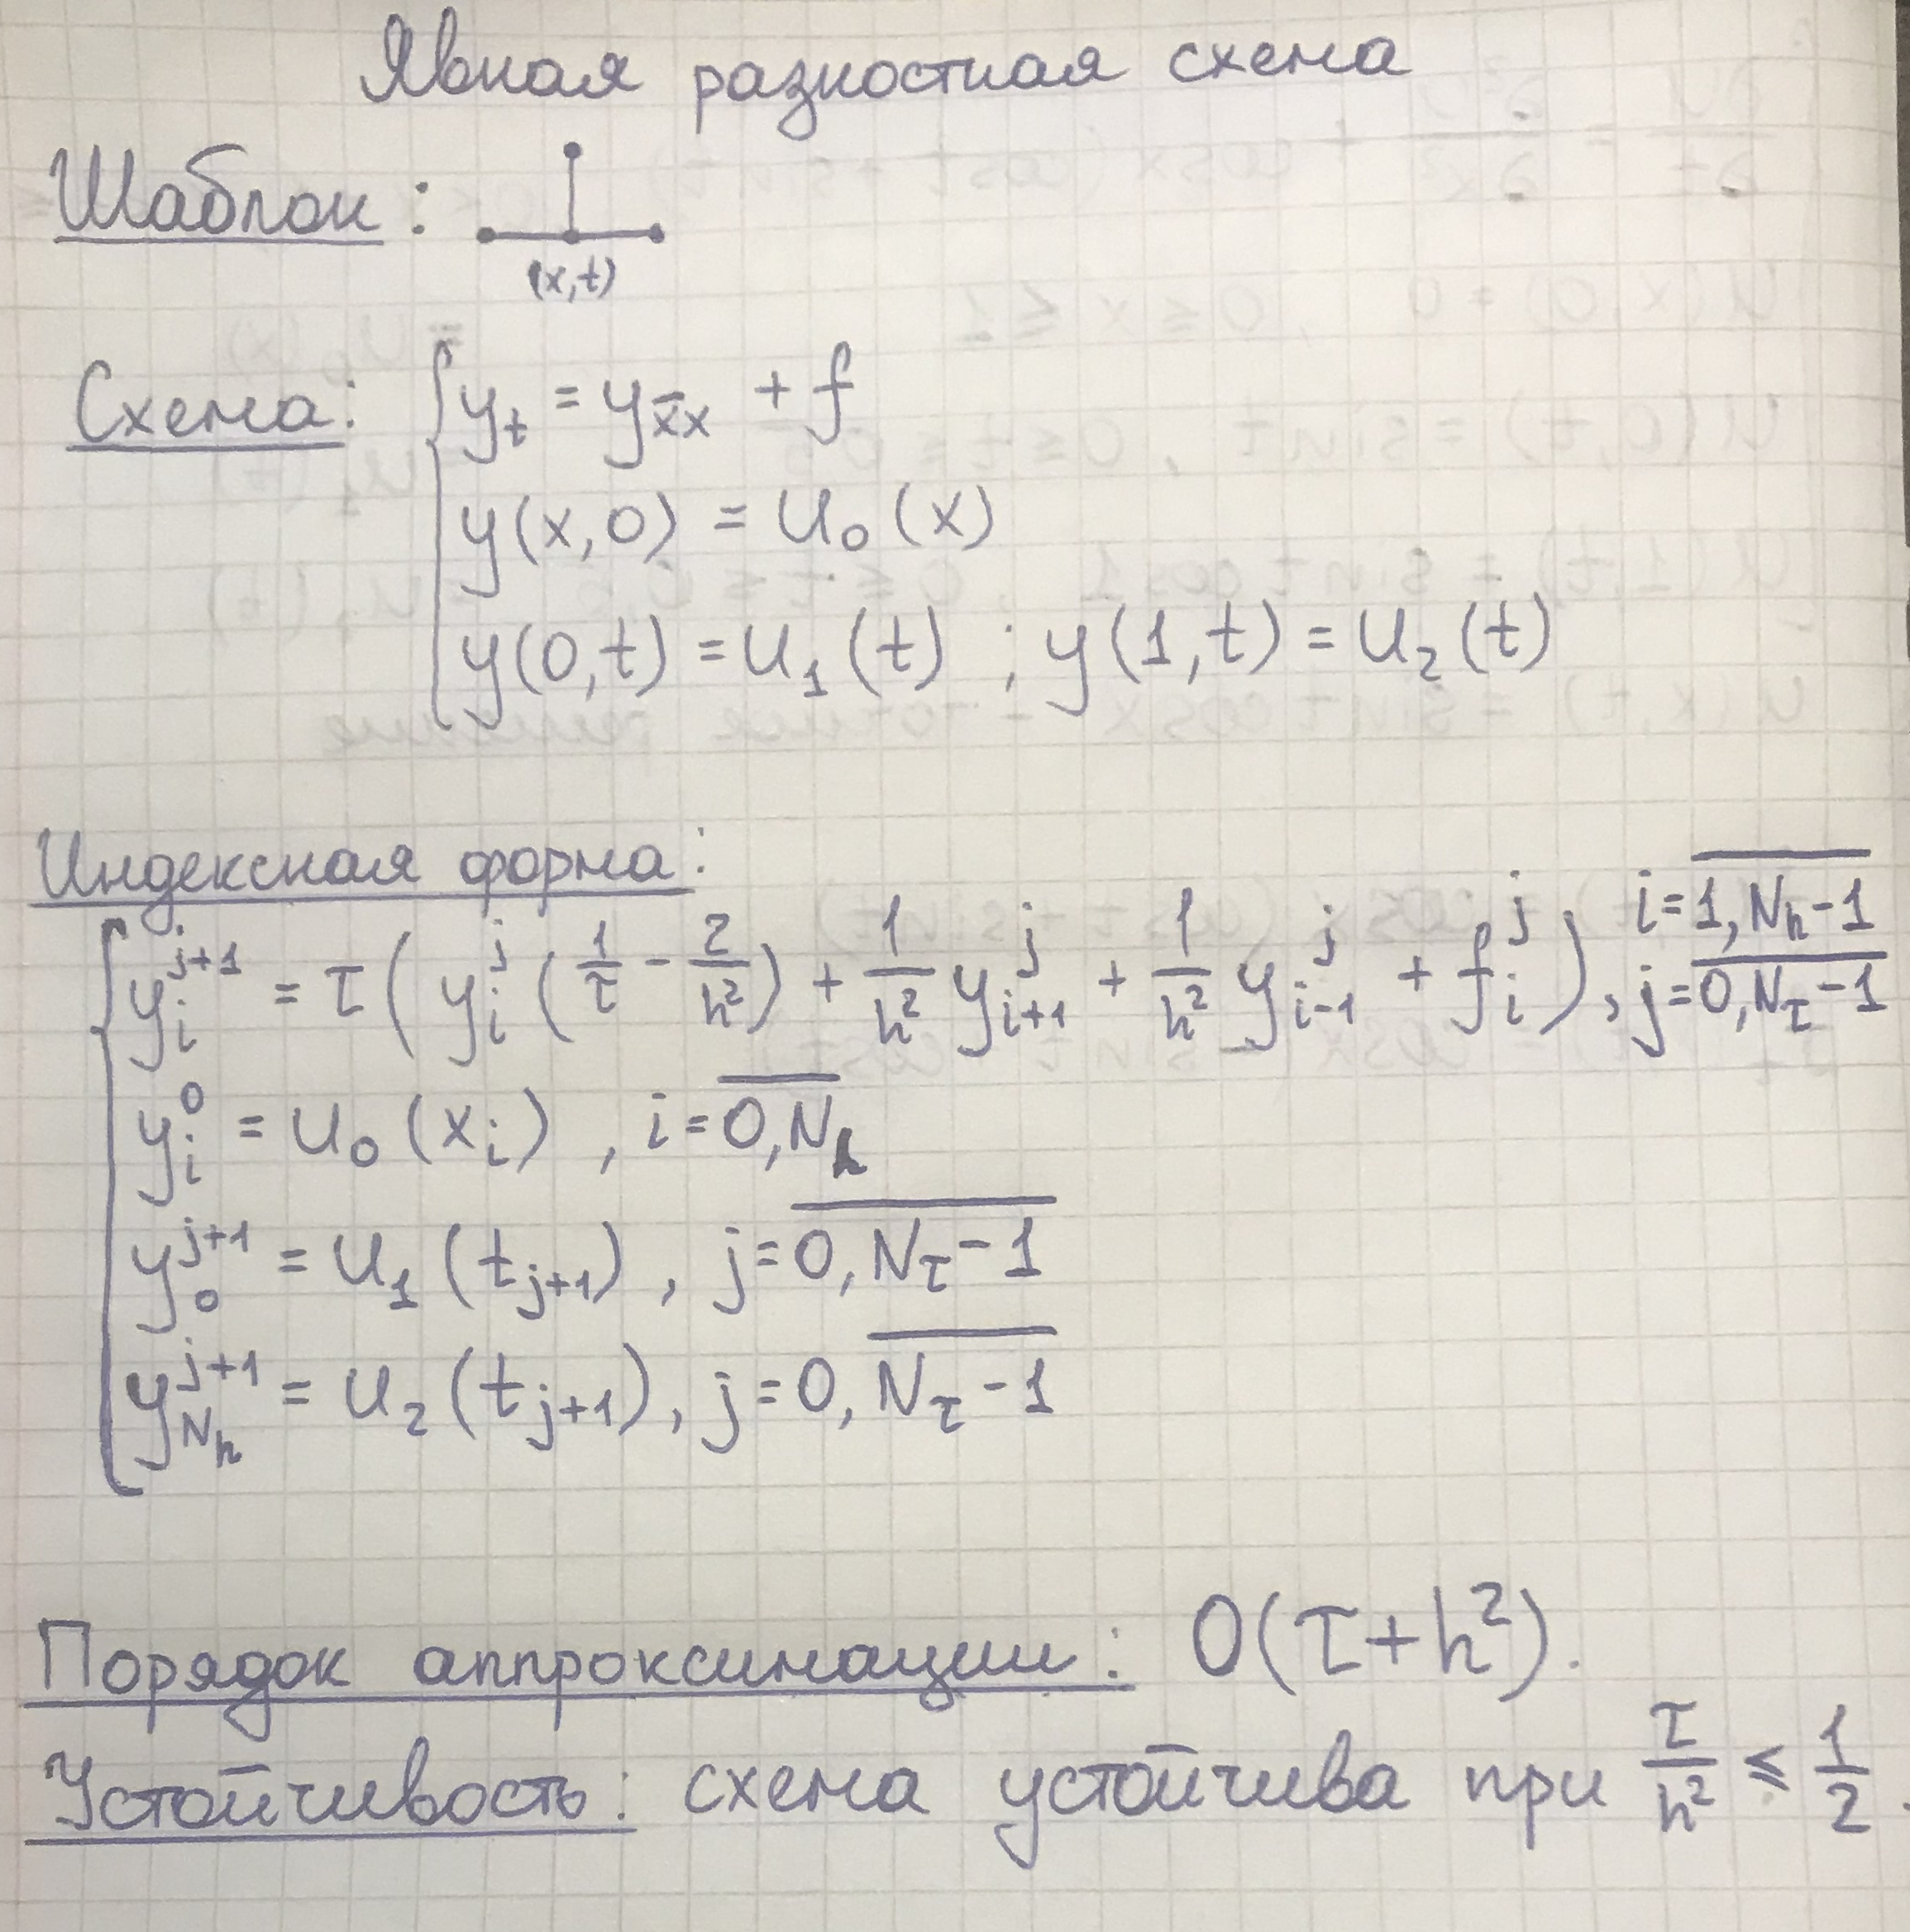 Явная разностная схема
Шаблон:
(x,t)
Схема: { y_t = y_{x̄x} + f
y(x,0) = u_0(x)
y(0,t) = u_1(t) ; y(1,t) = u_2(t)
Индексная форма:
{ y_i^{j+1} = τ( y_i^j (1/τ - 2/h²) + 1/h² y_{i+1}^j + 1/h² y_{i-1}^j + f_i^j ), i = \overline{1, N_h - 1}
j = \overline{0, N_τ - 1}
y_i^0 = u_0(x_i) , i = \overline{0, N_h}
y_0^{j+1} = u_1(t_{j+1}) , j = \overline{0, N_τ - 1}
y_{N_h}^{j+1} = u_2(t_{j+1}), j = 0, \overline{N_τ - 1}
Порядок аппроксимации: O(τ+h²).
Устойчивость: схема устойчива при τ/h² ≤ 1/2.